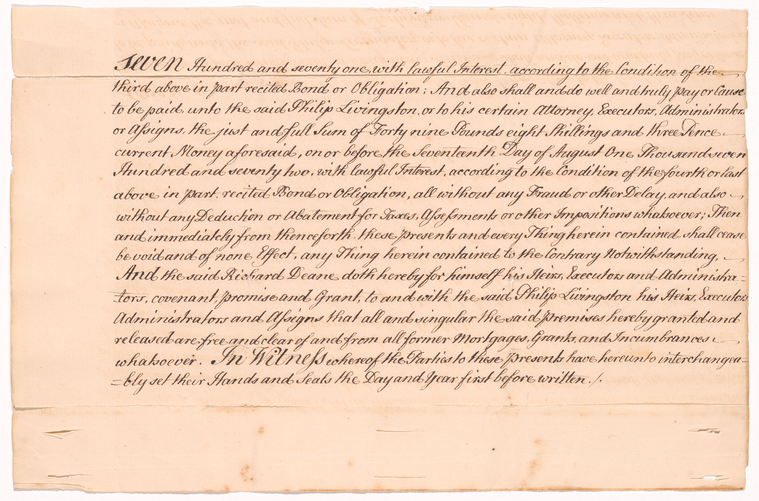 seven Hundred and seventy one, with lawful Interest, according to the Condition of the
third above in part recited Bond or Obligation; And also shall and do well and truly pay or cause
to be paid unto the said Philip Livingston, or to his certain Attorney, Executors, Administrators
or Assigns, the just and full Sum of Forty nine Pounds eight Shillings and three Pence
current Money aforesaid, on or before the Seventeenth Day of August One Thousand seven
Hundred and seventy two, with lawful Interest, according to the Condition of the fourth or last
above in part recited Bond or Obligation, all without any Fraud or other Delay, and also
without any Deduction or Abatement for Taxes, Assessments or other Impositions whatsoever; Then
and immediately from thenceforth these presents and every Thing herein contained shall cease
be void and of none Effect, any Thing herein contained to the Contrary Notwithstanding,
And the said Richard Deane doth hereby for himself his Heirs, Executors and Administra-
-tors, covenant, promise and Grant, to and with the said Philip Livingston his Heirs, Executors
Administrators and Assigns that all and singular the said premises hereby granted and
released are free and clear of and from all former Mortgages, Grants, and Incumbrances
whatsoever. In Witness whereof the Parties to these presents have hereunto interchangea-
-bly set their Hands and Seals the Day and Year first before written./.